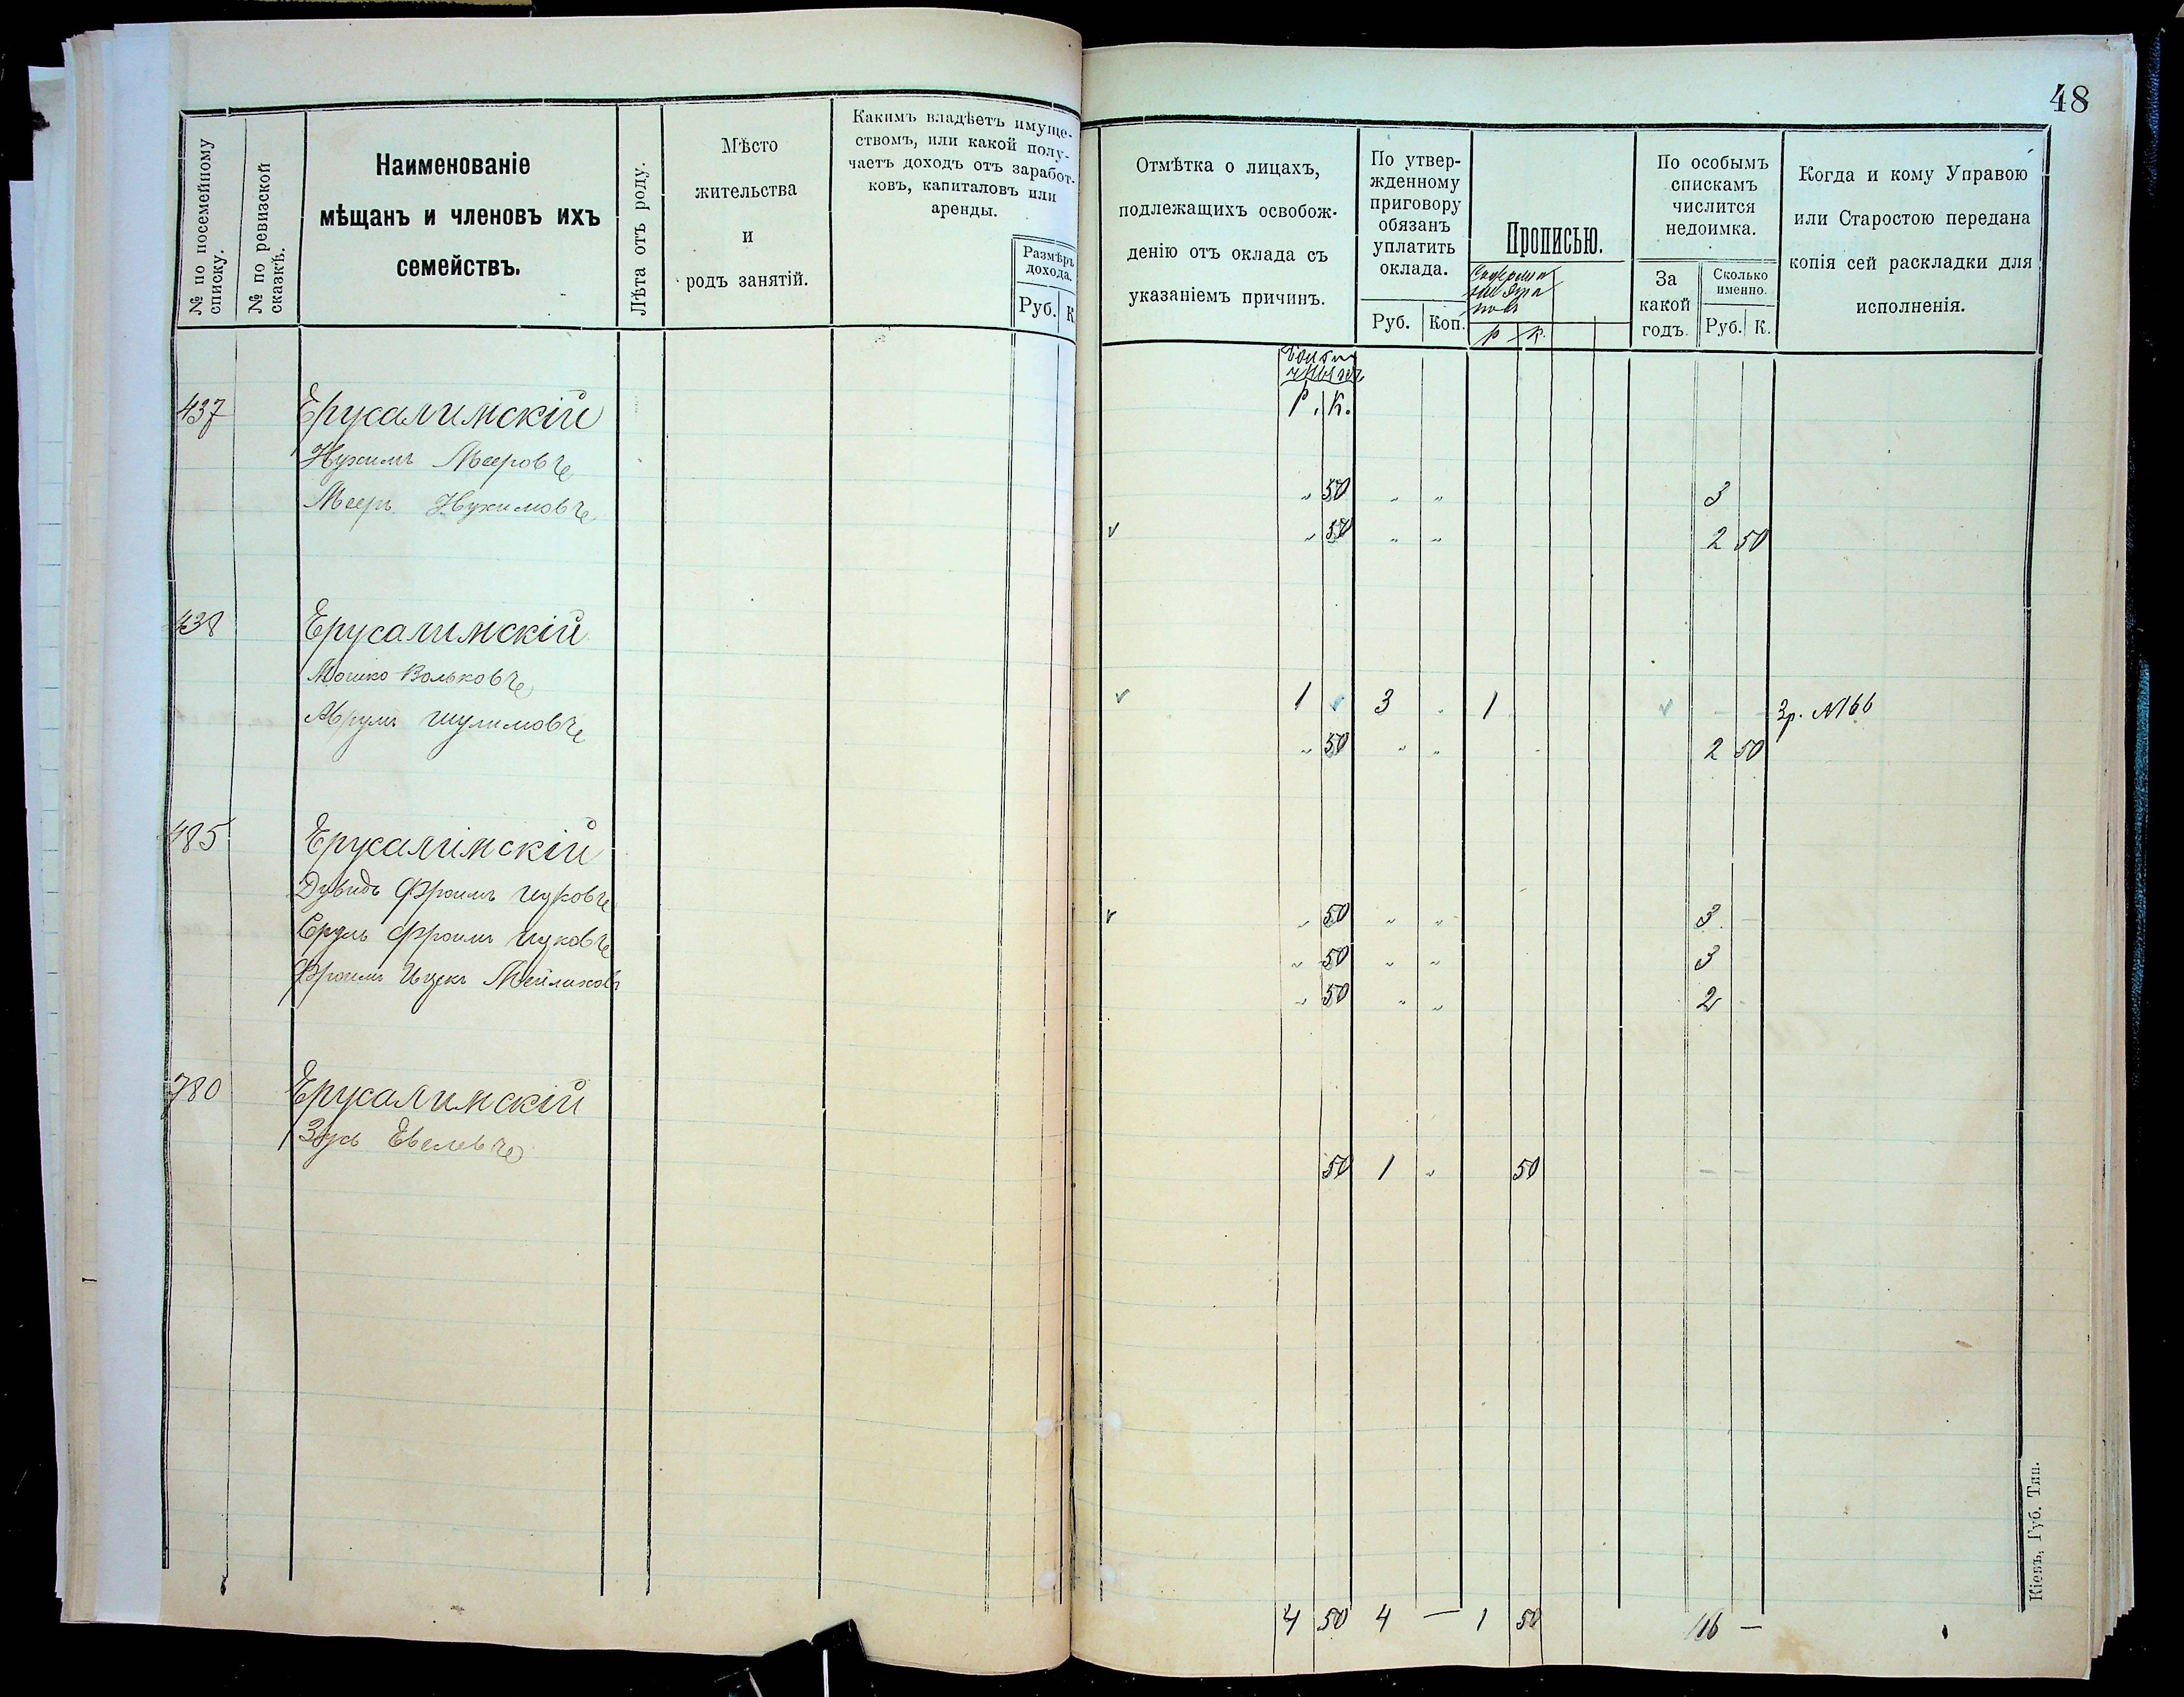 48
№ по посемейному
списку.
№ по ревизской
сказкѣ.
Наименованіе
мѣщанъ и членовъ ихъ
семействъ.
Лѣта отъ роду.
Мѣсто
жительства
и
родъ занятій.
Какимъ владѣетъ имуще-
ствомъ, или какой полу-
чаетъ доходъ отъ заработ-
ковъ, капиталовъ или
аренды.
Размѣръ
дохода.
Руб. К.
Отмѣтка о лицахъ,
подлежащихъ освобож-
денію отъ оклада съ
указаніемъ причинъ.
По утвер-
жденному
приговору
обязанъ
уплатить
оклада.
Руб. Коп.
Прописью.
р к.
По особымъ
спискамъ
числится
недоимка.
За
какой
годъ.
Сколько
именно.
Руб. К.
Когда и кому Управою
или Старостою передана
копія сей раскладки для
исполненія.
Р. К.
437 Ерусалимскій
Нухимъ Мееровъ
" 50 " " 3
Мееръ Нухимовъ
v " 50 " " 2 50
438 Ерусалимскій
Мошко Вольковъ
v 1 v 3 " 1 v — — 3р. №166
Аврумъ Шулимовъ
" 50 " " 2 50
485 Ерусалимскій
Дувидъ Фроимъ Ицковъ
v " 50 " " 3 —
Сруль Фроимъ Ицковъ
" 50 " " 3
Фроимъ Ицекъ Мейлиховъ
" 50 " " 2 -
780 Ерусалимскій
Зусь Евелевъ
50 1 " 50 — —
4 50 4 — 1 50 16 —
Кіевъ, Губ. Тип.